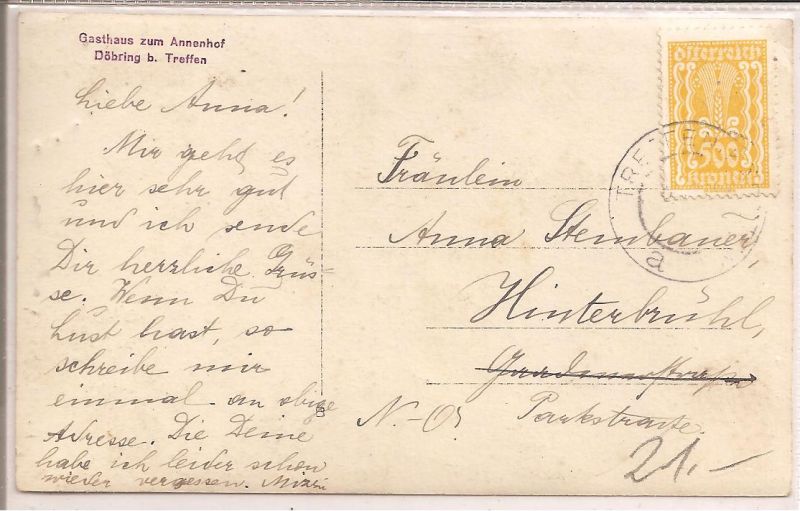 Gasthaus zum Annenhof
Döbring b. Treffen
Liebe Anna!
Mir geht es
hier sehr gut
und ich sende
Dir herzliche Grüs-
se. Wenn Du
Lust hast, so
schreibe mir
einmal an obige
Adresse. Die Deine
habe ich leider schon
wieder vergessen. Mizzi
Österreich
500
Kronen
TREFFEN
a
Fräulein
Anna Steinbauer,
Hinterbrühl,
Parkstraße.
N-Ö.
21.-